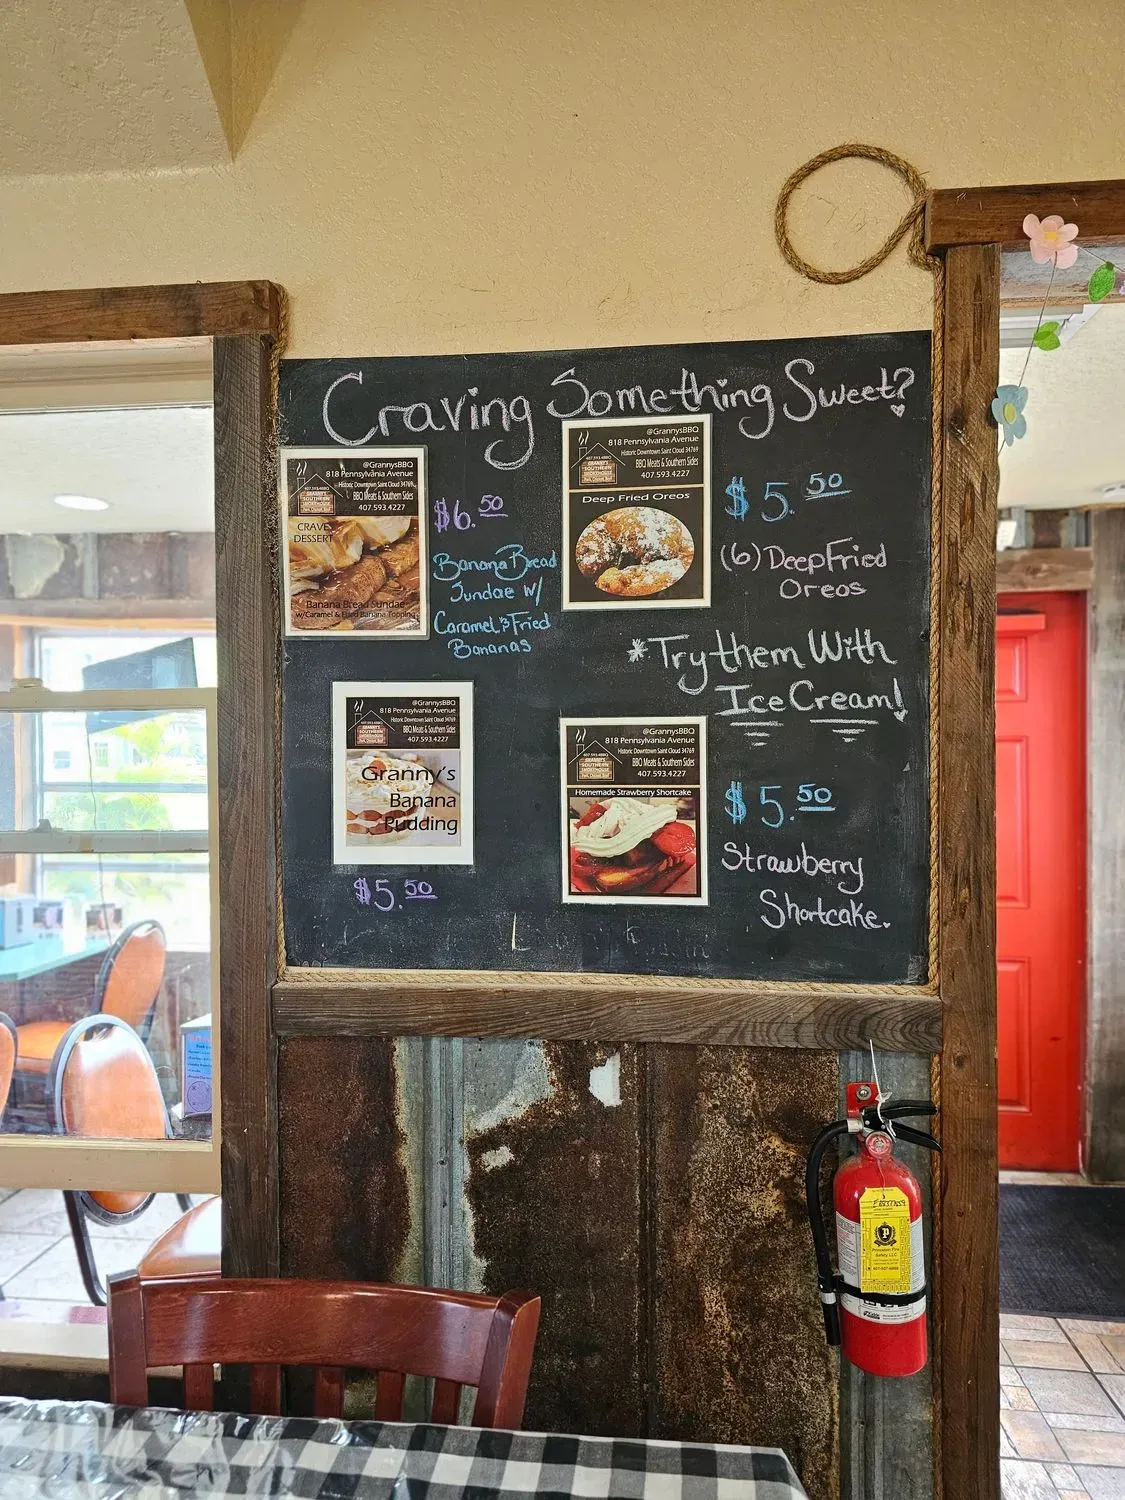 Craving Something Sweet?
@GrannysBBQ
818 Pennsylvania Avenue
Historic Downtown Saint Cloud 34769
BBQ Meats & Southern Sides
407.593.4227
GRANNY'S
SOUTHERN
SMOKEHOUSE
CRAVE
DESSERT
Banana Bread Sundae
w/Caramel & Fried Banana Topping
$6.50
Banana Bread
Sundae w/
Caramel & Fried
Bananas
@GrannysBBQ
818 Pennsylvania Avenue
Historic Downtown Saint Cloud 34769
BBQ Meats & Southern Sides
407.593.4227
GRANNY'S
SOUTHERN
SMOKEHOUSE
Deep Fried Oreos
$5.50
(6) Deep Fried
Oreos
*Try them With
Ice Cream!
@GrannysBBQ
818 Pennsylvania Avenue
Historic Downtown Saint Cloud 34769
BBQ Meats & Southern Sides
407.593.4227
GRANNY'S
SOUTHERN
SMOKEHOUSE
Granny's
Banana
Pudding
$5.50
@GrannysBBQ
818 Pennsylvania Avenue
Historic Downtown Saint Cloud 34769
BBQ Meats & Southern Sides
407.593.4227
GRANNY'S
SOUTHERN
SMOKEHOUSE
Pork, Chicken, Beef
Homemade Strawberry Shortcake
$5.50
Strawberry
Shortcake.
P
Princeton Fire
Safety LLC